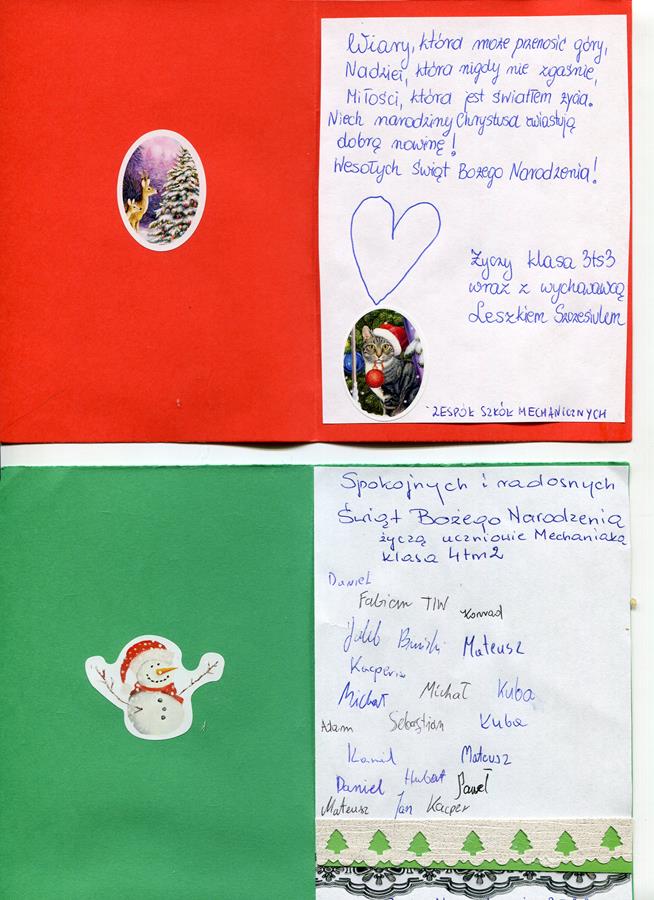 Wiary, która może przenosić góry,
Nadziei, która nigdy nie zgaśnie,
Miłości, która jest światłem życia.
Niech narodziny Chrystusa zwiastują
dobrą nowinę!
Wesołych Świąt Bożego Narodzenia!
Życzy klasa 3ts3
wraz z wychowawcą
Leszkiem
ZESPÓŁ SZKÓŁ MECHANICZNYCH
Spokojnych i radosnych
Świąt Bożego Narodzenia
życzą uczniowie Mechaniaka
klasa 4tm2
Daniel
Fabian TIW Konrad
Jakub Mateusz
Kacper
Michał Michał Kuba
Adam Sebastian Kuba
Kamil Mateusz
Daniel Hubert Paweł
Mateusz Jan Kacper